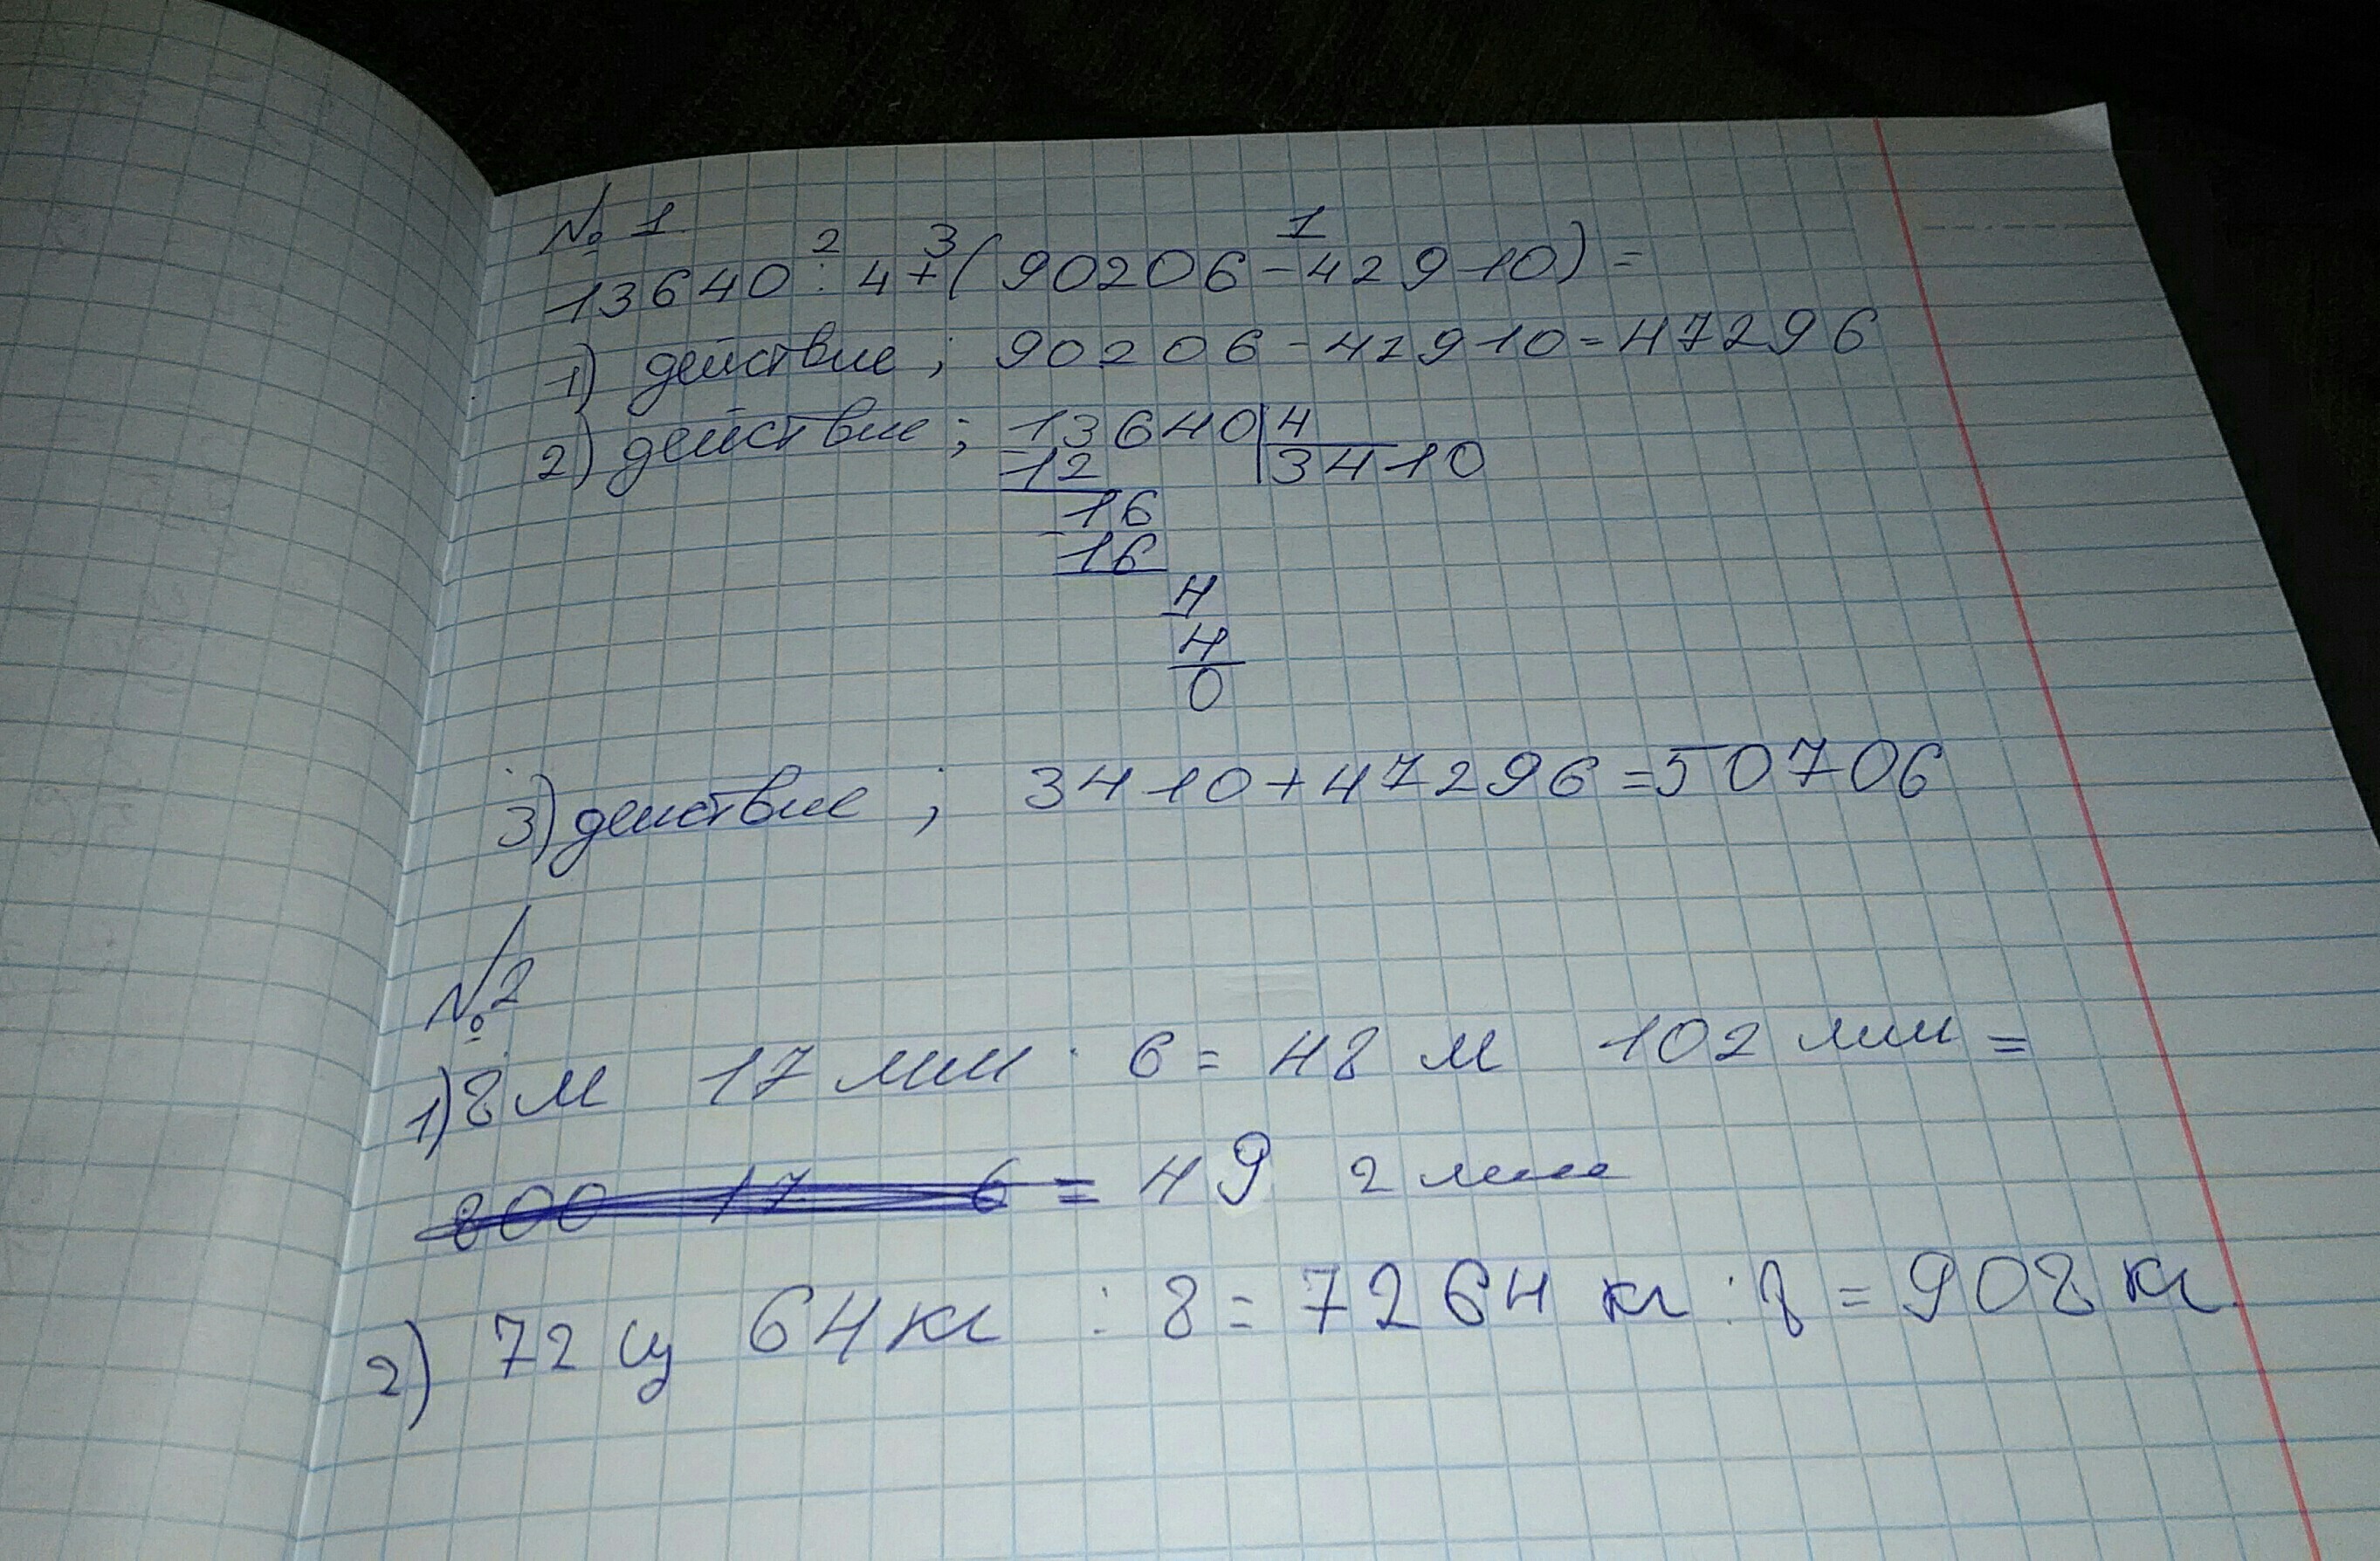 № 1.
2 3 1
13640 : 4 + (90206 - 42910) =
1) действие ; 90206 - 42910 = 47296
2) действие ; 13640 | 4
12 3410
16
16
4
4
0
3) действие ; 3410 + 47296 = 50706
№2
1) 8 м 17 мм · 6 = 48 м 102 мм =
800 17 6 = 49 2 мм
2) 72 ц 64 кг : 8 = 7264 кг : 8 = 908 кг.